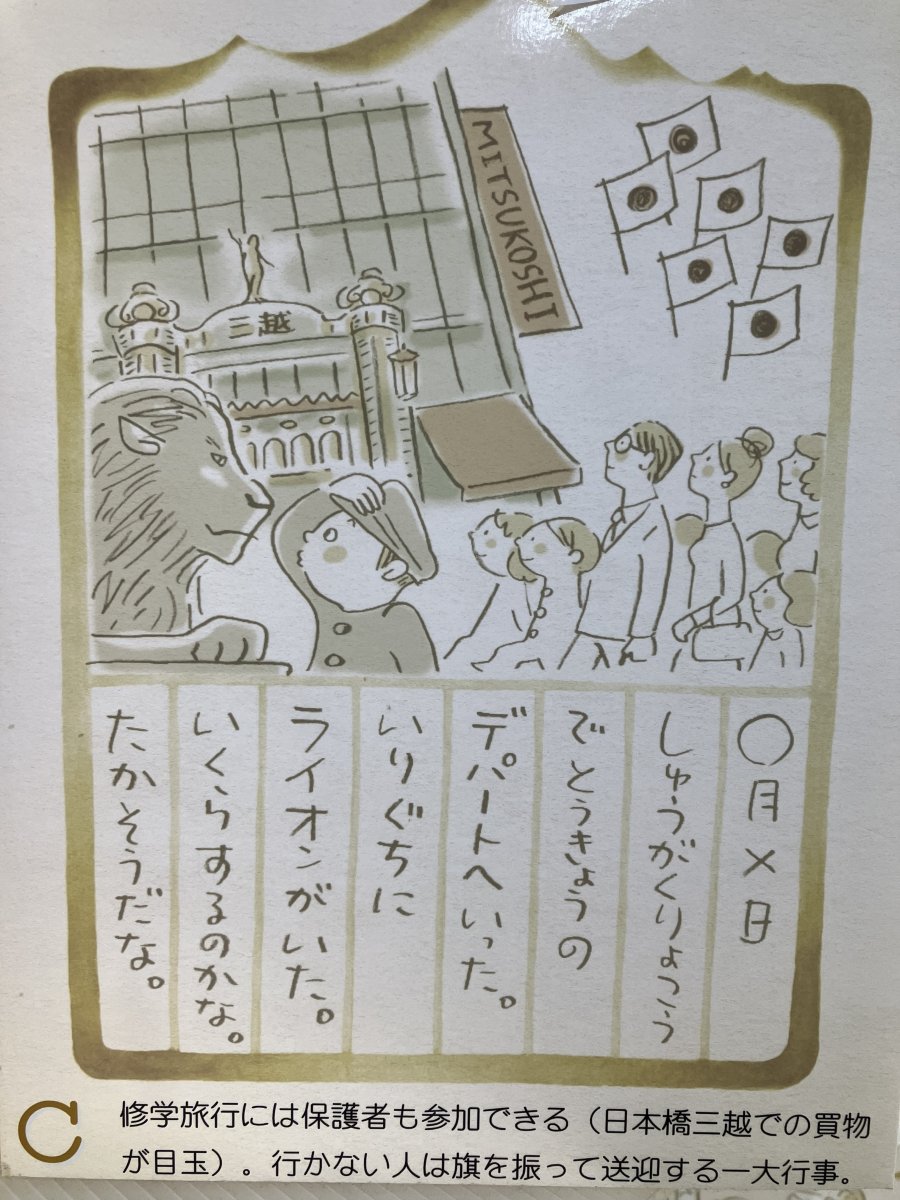 MITSUKOSHI
三越
〇月×日
しゅうがくりょこう
でとうきょうの
デパートへいった。
いりぐちに
ライオンがいた。
いくらするのかな。
たかそうだな。
C
修学旅行には保護者も参加できる（日本橋三越での買物
が目玉）。行かない人は旗を振って送迎する一大行事。